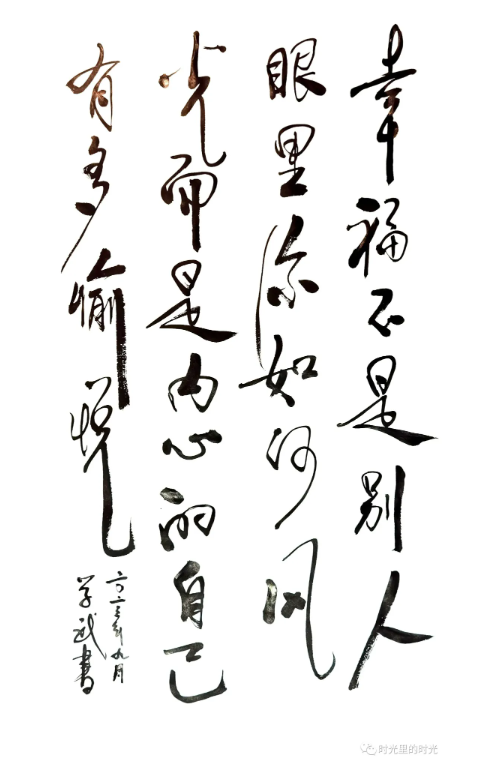 幸福不是别人
眼里你如何风
光而是内心的自己
有多愉悦
二〇二三年九月
学武书
时光里的时光